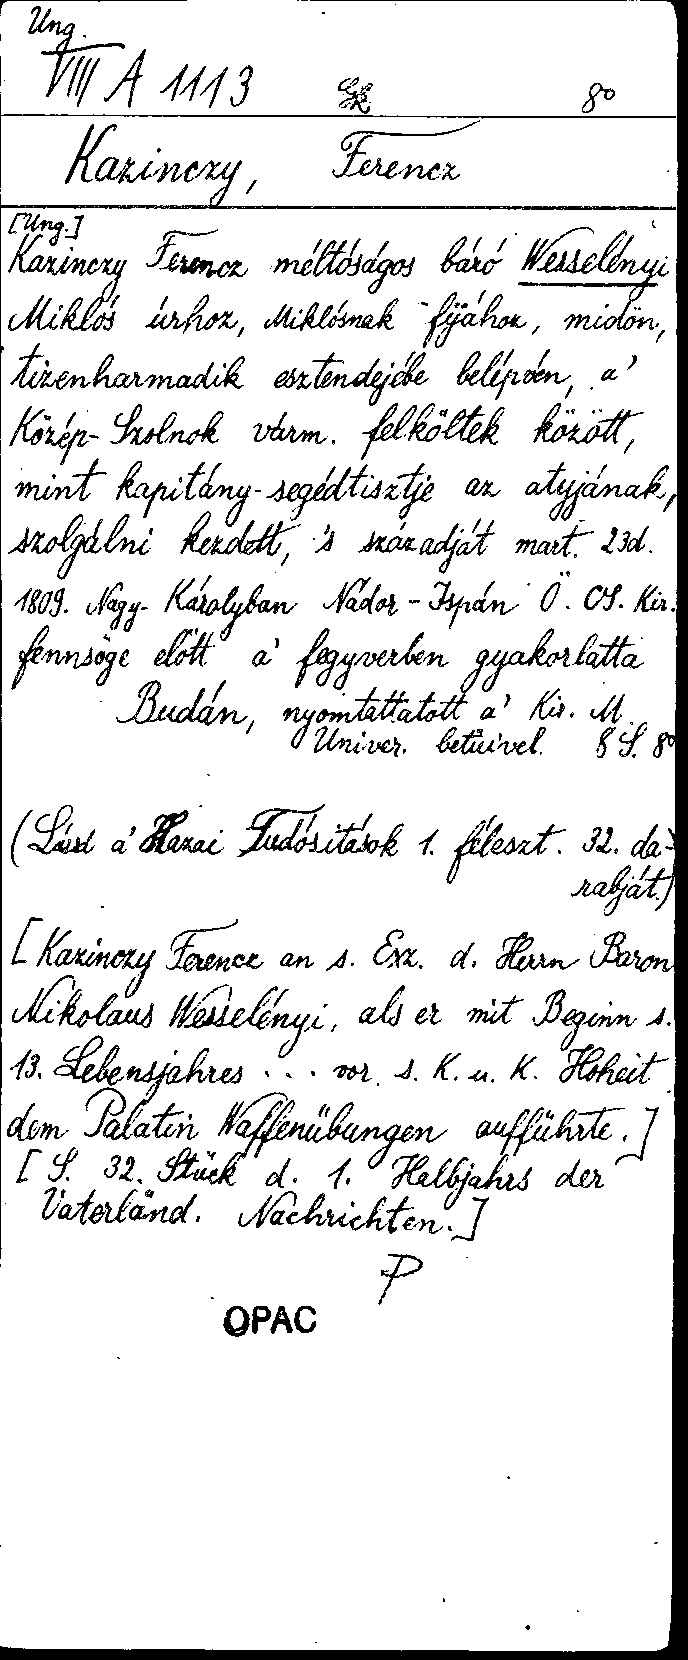 Ung.
VIII A 1113 Gk 8°
Kazinczy, Ferencz
[Ung.]
Kazinczy Ferencz méltóságos báró Wesselényi
Miklós úrhoz, Miklósnak fijához, midőn,
tizenharmadik esztendejébe belépvén, a'
Közép-Szolnok várm. felköltek között,
mint kapitány-segédtisztje az atyjának,
szolgálni kezdett, 's századját mart. 23d.
1809. Nagy-Károlyban Nádor-Ispán Ö. CS. Kir.
fennsöge előtt a' fegyverben gyakorlatta
Budán, nyomtattatott a' Kir. M.
Univer. betűivel. 8 S. 8°
(Lásd a' Hazai Tudósitások 1. féleszt. 32. da-
rabját.)
[Kazinczy Ferencz an s. Exz. d. Herrn Baron
Nikolaus Wesselényi, als er mit Beginn s.
13. Lebensjahres ... vor s. K. u. K. Hoheit
dem Palatin Waffenübungen aufführte.]
[S. 32. Stück d. 1. Halbjahrs der
Vaterländ. Nachrichten.]
P
OPAC